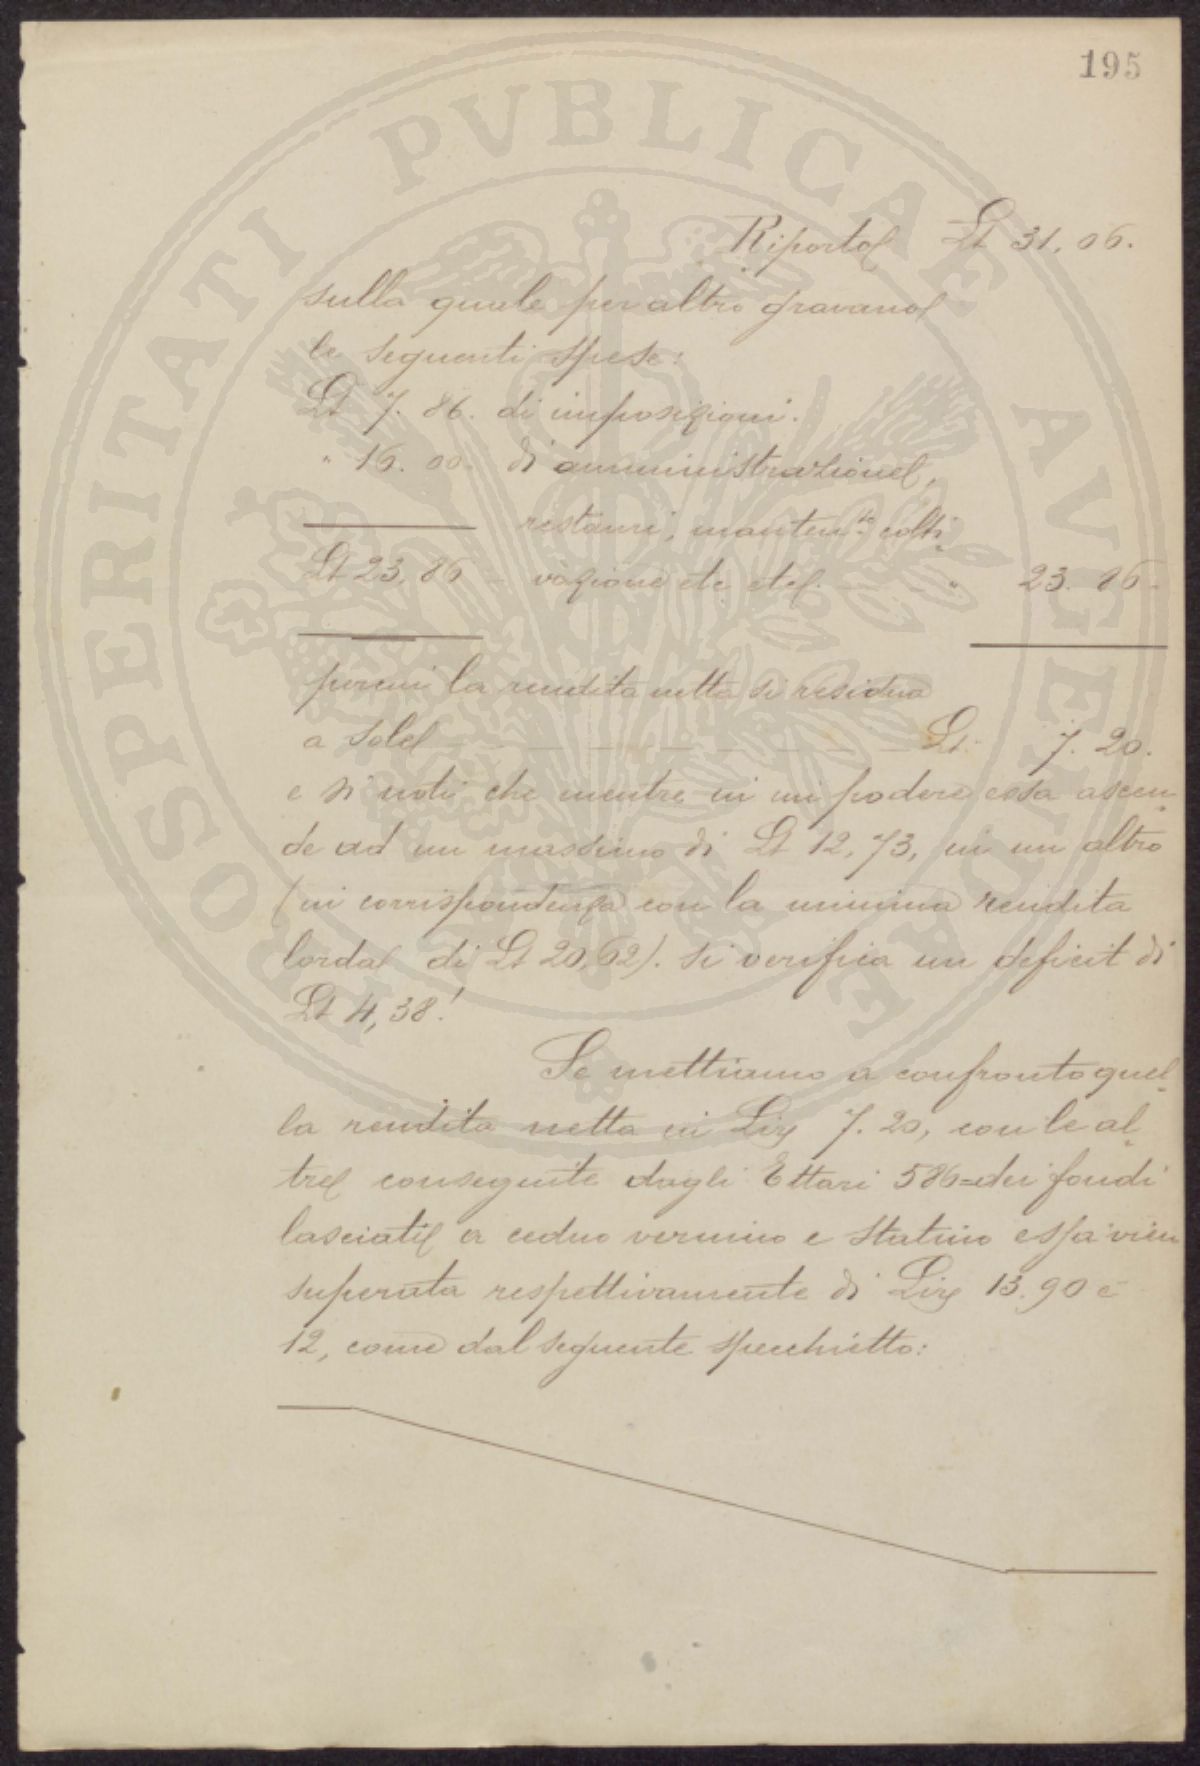 195
Riporto Lt 31,06.
sulla quale per altro gravano
le seguenti spese:
Lt 7.86. di imposizioni.
" 16.00. di amministrazione,
restauri, manten.to colti-
Lt 23,86 - vazione etc etc. " 23.86-
percui la rendita netta si residua
a sole Lt. 7.20.
e si noti che mentre in un podere essa ascen-
de ad un massimo di Lt 12,73, in un altro
(in corrispondenza con la minima rendita
lorda di Lt 20,62). si verifica un deficit di
Lt 4,38!
Se mettiamo a confronto quel-
la rendita netta in Lire 7.20, con le al-
tre conseguite dagli Ettari 586= dei fondi
lasciati a ceduo vernino e statino essa vien
superata respettivamente di Lire 13.90 e
12, come dal seguente specchietto:
PROSPERITATI PVBLICAE AVGENDAE